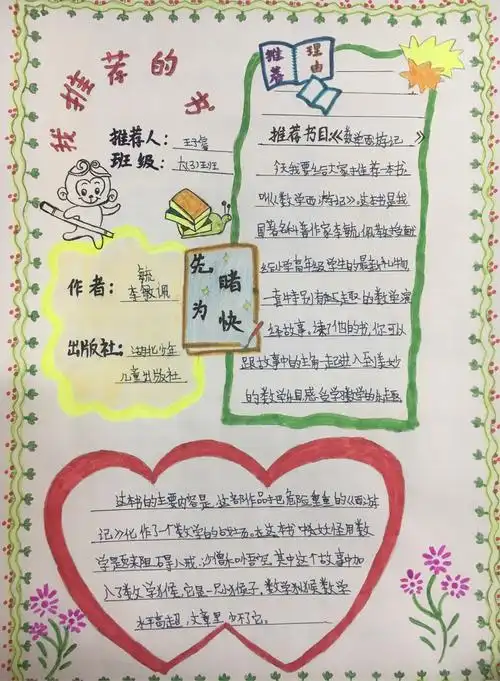 我推荐的书
推荐理由
推荐人：
班级：六(3)班
推荐书目《数学西游记》
今天我要给大家推荐一本书
叫《数学西游记》，这本书是我
国著名科普作家李毓佩教授献
给小学高年级学生的最新礼物
事特别有趣的数学
故事，读了他的书，你可以
跟故事中的主角一起进入奇妙
的数学乐园感受学数学的乐趣
先睹为快
作者：
毓
李敏佩
出版社：湖北少年
儿童出版社
这本书的主要内容是，这部作品把危险重重的《西游
记》化作了一个数学的战场。在这本书中妖怪用数
学题来阻碍八戒、沙僧和悟空，其中这个故事中加
入了数学猴，它是一只小猴子，数学猕猴数学
水平高超，文章里少不了它。